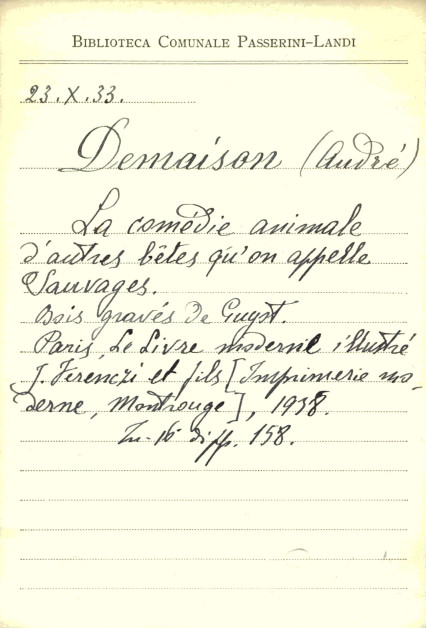 BIBLIOTECA COMUNALE PASSERINI-LANDI
23.X.33.
Demaison (André)
La comédie animale
d'autres bêtes qu'on appelle
Sauvages.
Bois gravés de Guyot.
Paris, Le Livre moderne illustré
J. Ferenczi et fils [Imprimerie mo-
derne, Montrouge], 1938.
In-16 di pp. 158.